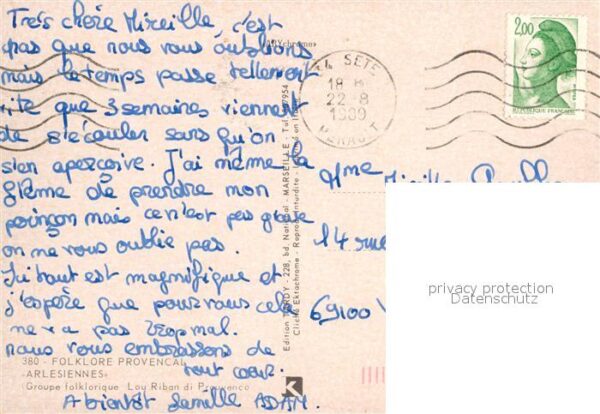 Très chère Mireille, c'est
pas que nous vous oublions
mais le temps passe tellement
vite que 3 semaines viennent
de s'écouler sans qu'on
s'en aperçoive. J'ai même la
flème de prendre mon
poinçon mais ce n'est pas grave
on ne vous oublie pas.
Ici tout est magnifique et
j'espère que pour vous cela
ne va pas trop mal.
nous vous embrassons de
tout cœur.
A bientôt famille ADAM.
380 - FOLKLORE PROVENCAL
«ARLESIENNES»
(Groupe folklorique Lou Riban di Prouvenço
Edition TARDY - 228, bd. National - MARSEILLE - Tél.
Cliché Ektachrome - Reproduction interdite
K
SETE
18 H
22-8
1989
HERAULT
2,00
REPUBLIQUE FRANCAISE
Mme Mireille
14 rue
69100
privacy protection
Datenschutz